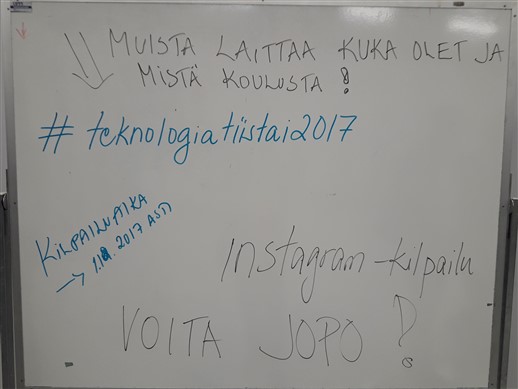 MUISTA LAITTAA KUKA OLET JA
MISTÄ KOULUSTA !
#teknologiatiistai2017
KILPAILUAIKA
→ 2017 ASTI
Instagram-kilpailu
VOITA JOPO !